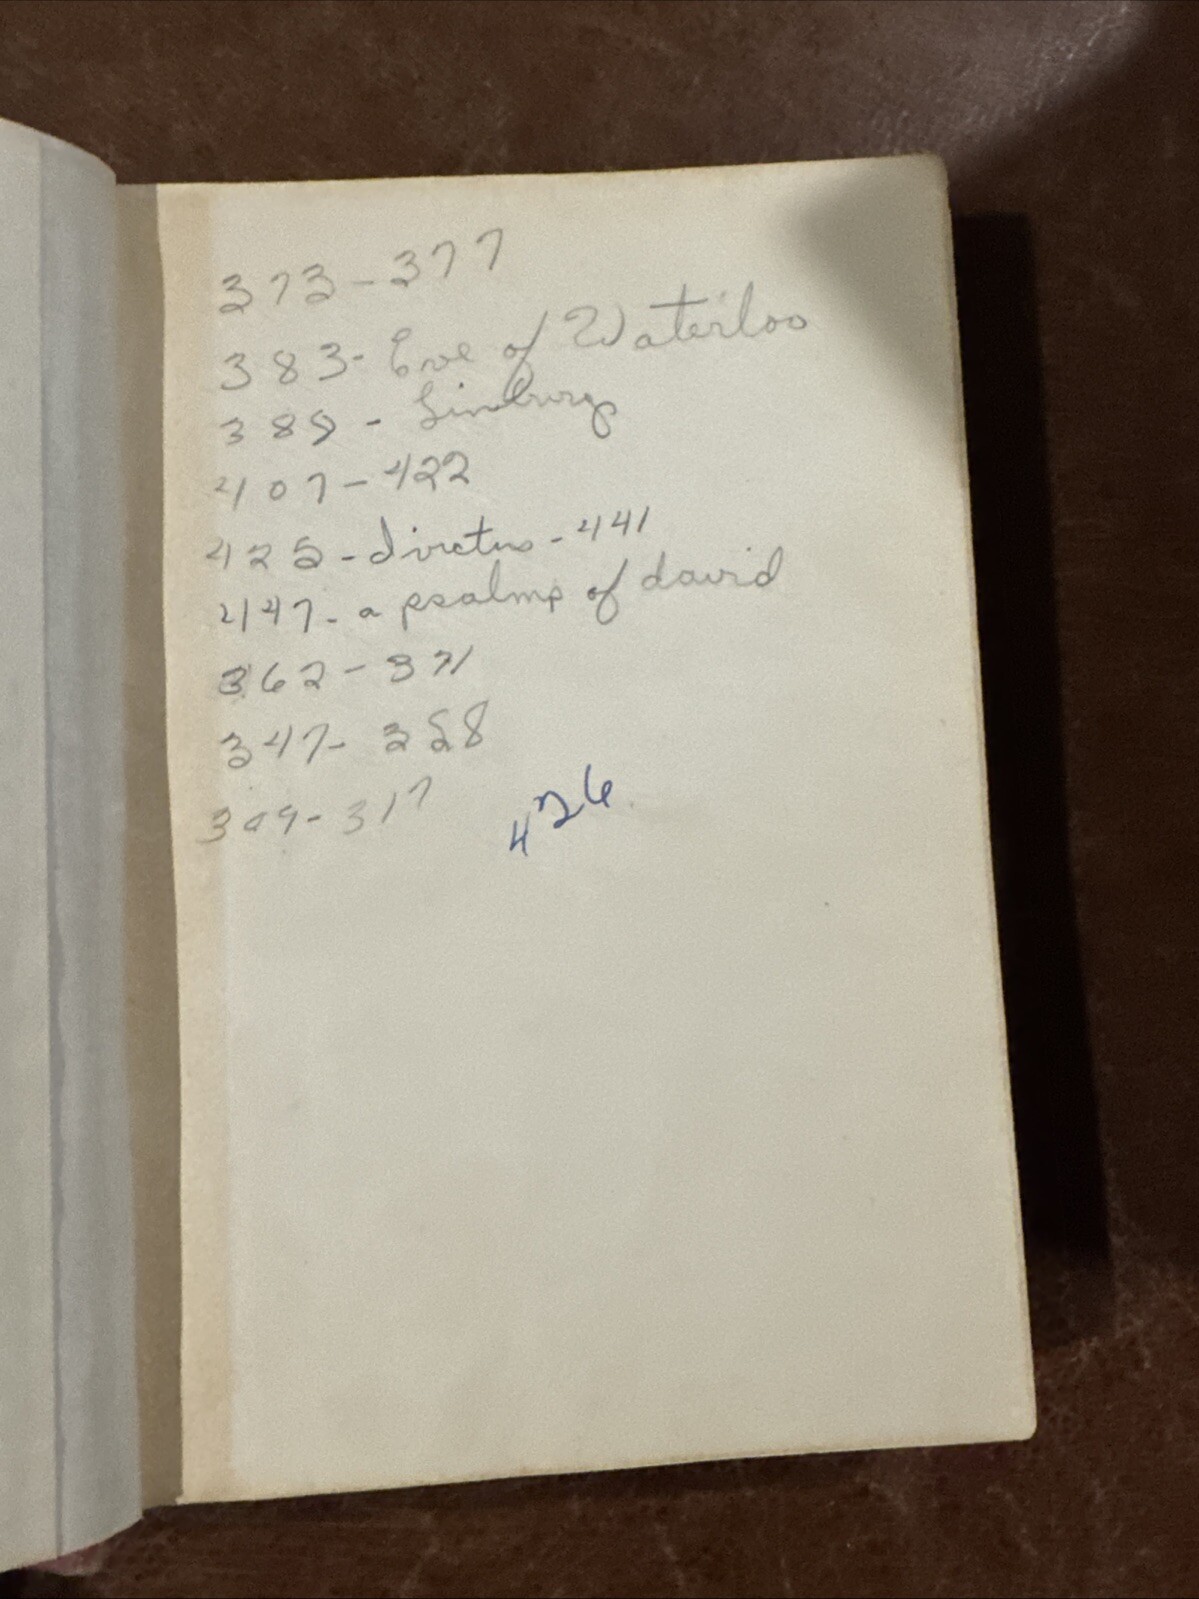 373-377
383- Eve of Waterloo
389 - Limburg
407-422
425- -441
447- a psalmp of david
362-371
347- 358
309-317
426